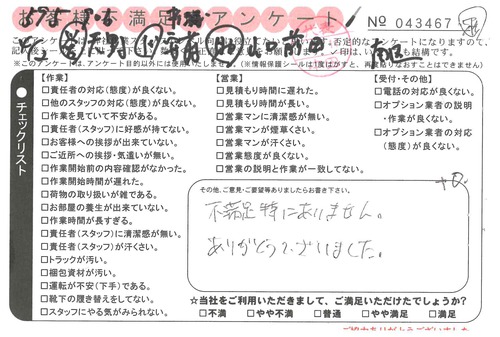 お客様不満足アンケート
No 043467
※このアンケートは、アンケート目的以外には使用いたしません。(※情報保護シールは1度はがすと、再度貼りなおすことはできません)
●チェックリスト
【作業】
□責任者の対応(態度)が良くない。
□他のスタッフの対応(態度)が良くない。
□作業を見ていて不安がある。
□責任者(スタッフ)に好感が持てない。
□お客様への挨拶が出来ていない。
□ご近所への挨拶・気遣いが無い。
□作業開始前の内容確認がなかった。
□作業開始時間が遅れた。
□荷物の取り扱いが雑である。
□お部屋の養生が出来ていない。
□作業時間が長すぎる。
□責任者(スタッフ)に清潔感が無い。
□責任者(スタッフ)が汗くさい。
□トラックが汚い。
□梱包資材が汚い。
□運転が不安(下手)である。
□靴下の履き替えをしてない。
□スタッフにやる気がみられない。
【営業】
□見積もり時間に遅れた。
□見積もり時間が長い。
□営業マンに清潔感が無い。
□営業マンが煙草くさい。
□営業マンが汗くさい。
□営業態度が良くない。
□営業の説明と作業が一致してない。
【受付・その他】
□電話の対応が良くない。
□オプション業者の説明
・作業が良くない。
□オプション業者の対応
(態度)が良くない。
その他、ご意見・ご要望等ありましたらお書き下さい。
不満足特にありません。
ありがとうございました。
☆当社をご利用いただきまして、ご満足いただけたでしょうか?
□不満 □やや不満 □普通 □やや満足 □満足
ご協力ありがとうございました